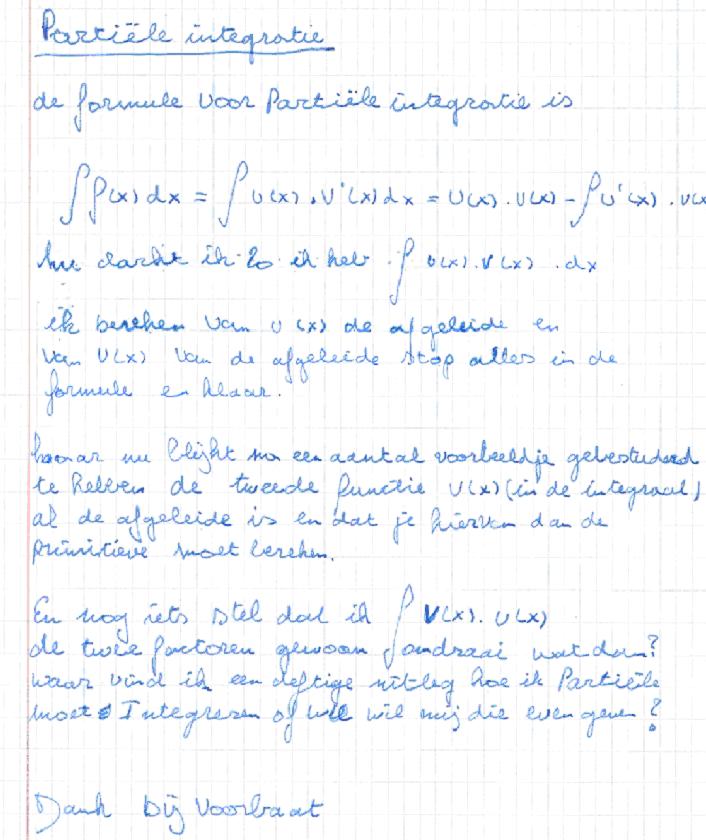 Partiële integratie
de formule voor Partiële integratie is
∫f(x) dx = ∫u(x).v'(x)dx = u(x).v(x) - ∫u'(x).v(x
nu dacht ik zo ik heb ∫u(x).v(x).dx
ik bereken van u(x) de afgeleide en
van v(x) van de afgeleide stop alles in de
formule en klaar.
maar nu blijkt na een aantal voorbeeldje gebestudeerd
te hebben de tweede functie v(x) (in de integraal)
al de afgeleide is en dat je hiervan dan de
primitieve moet bereken.
En nog iets stel dat ik ∫v(x).u(x)
de twee factoren gewoon omdraai wat dan?
waar vind ik een deftige uitleg hoe ik Partiële
moet Integreren of wie wil mij die even geven?
Dank bij voorbaat